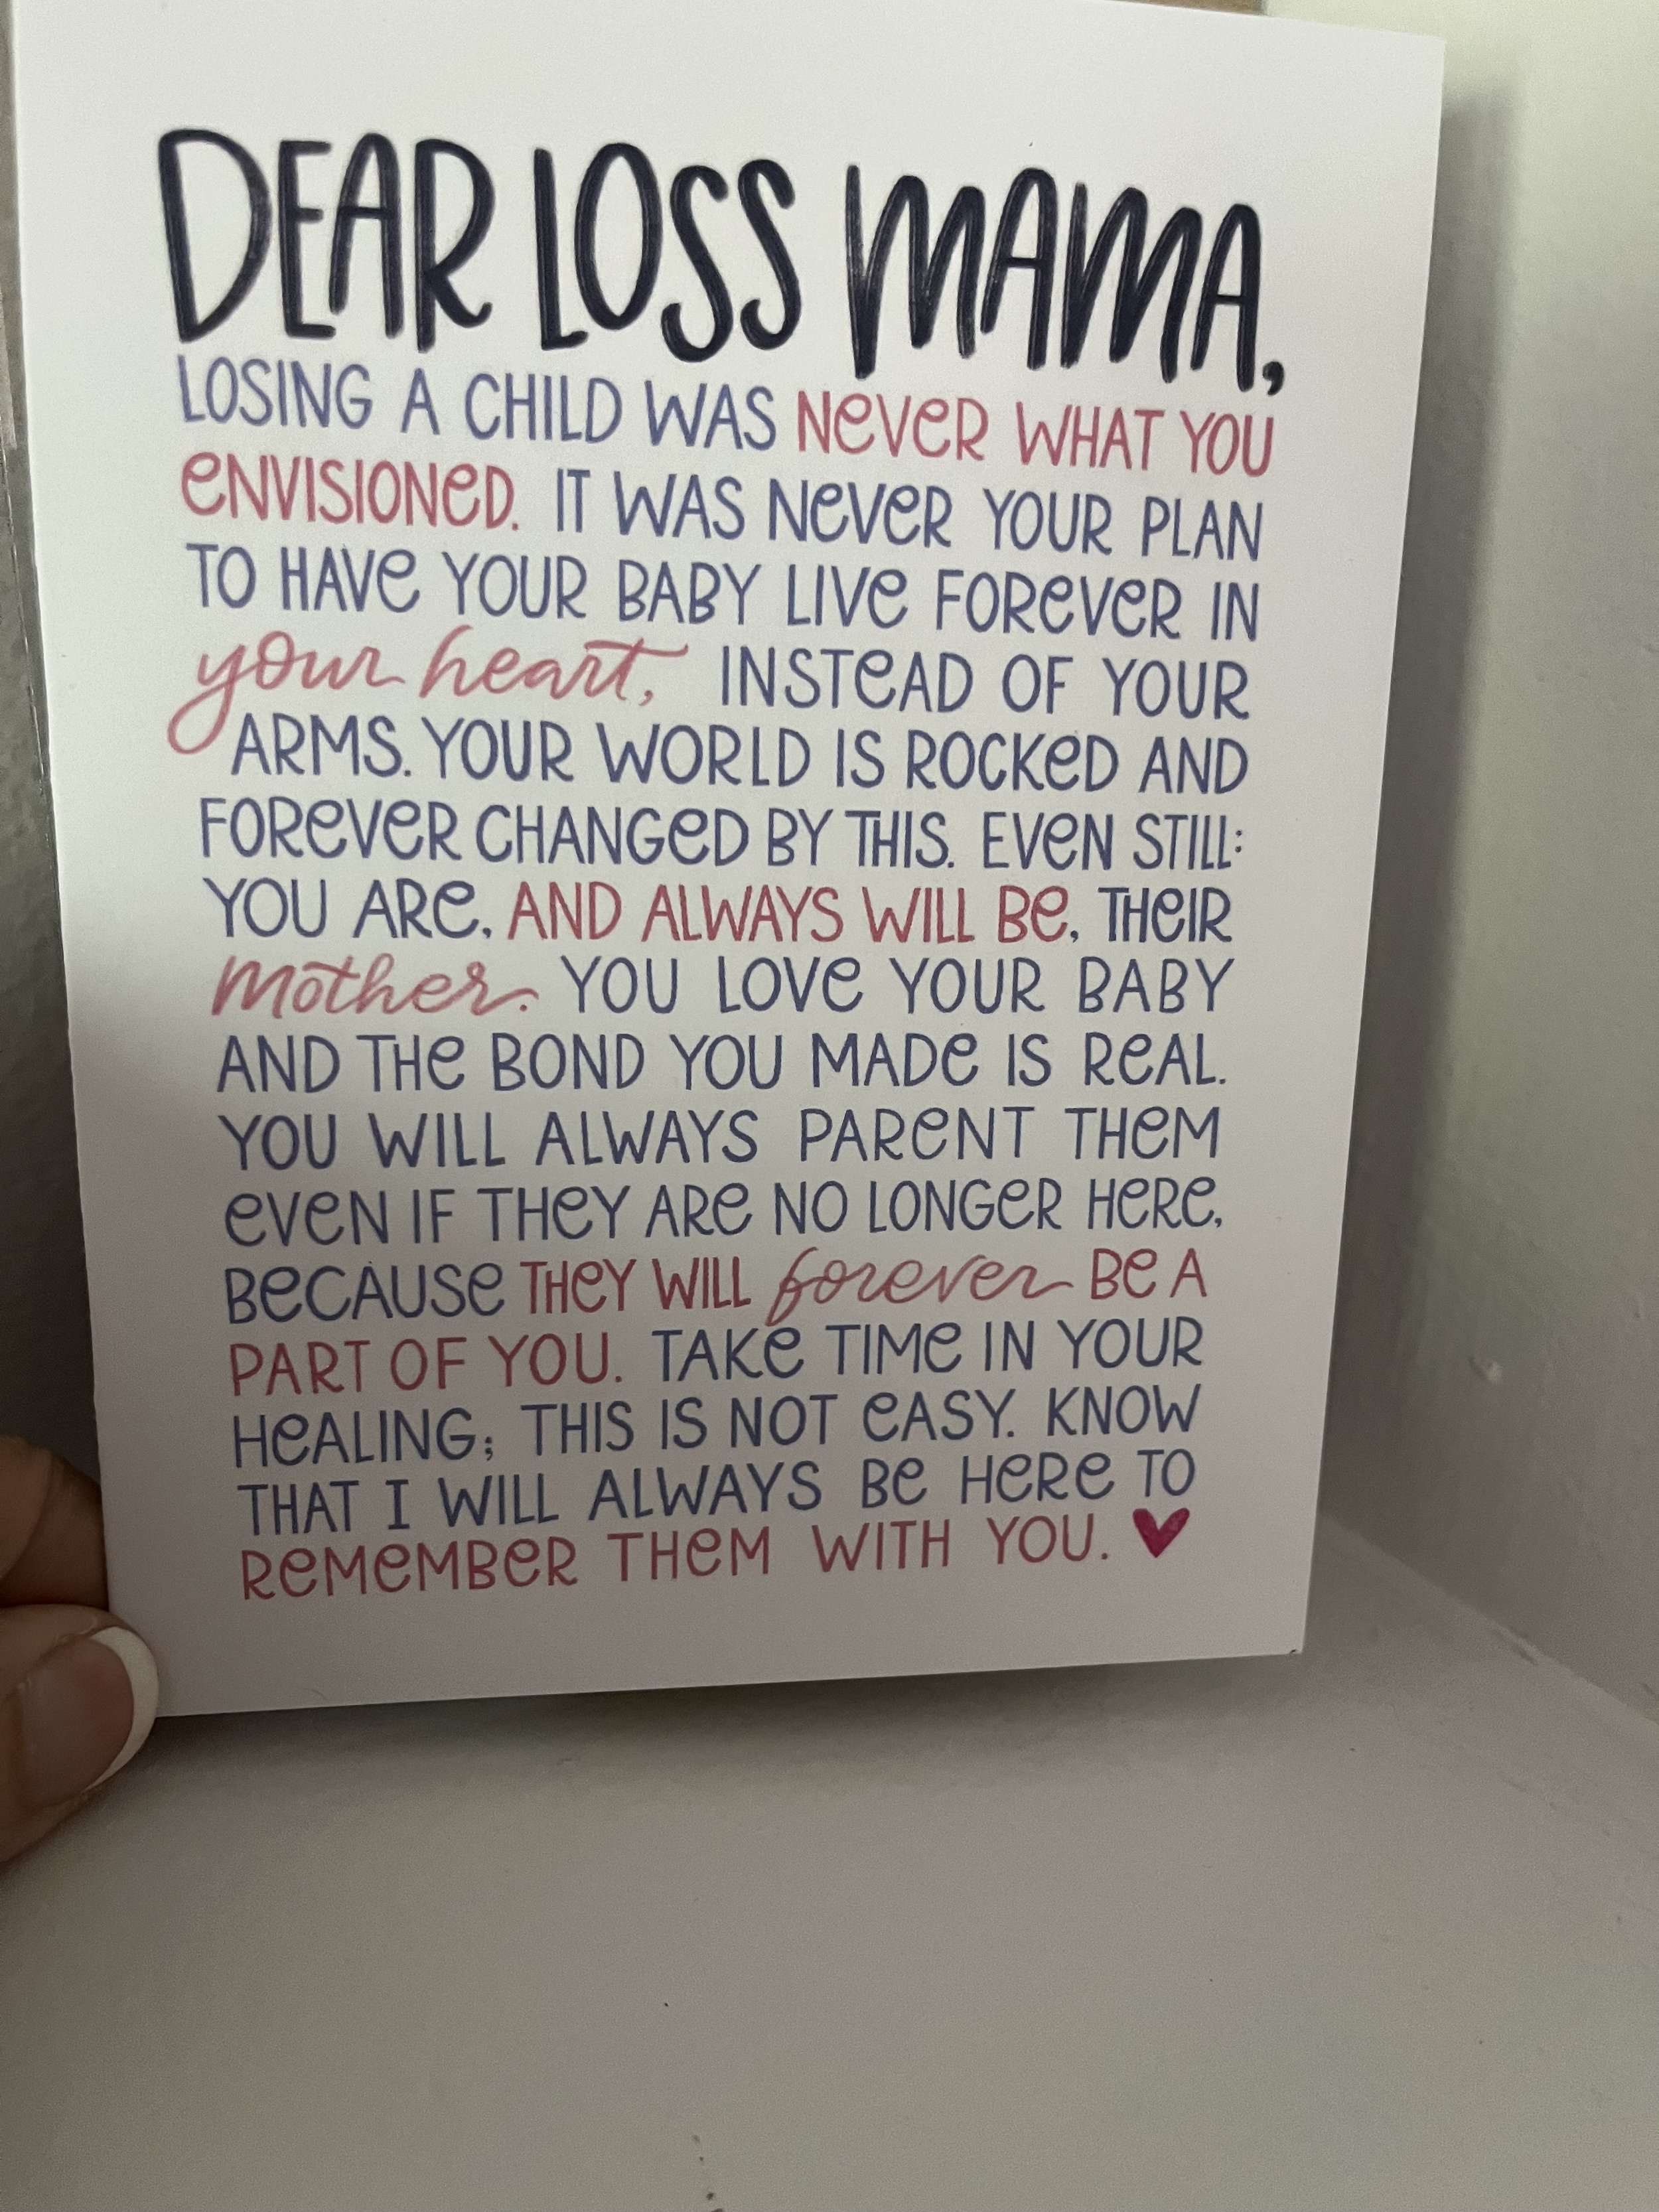 DEAR LOSS MAMA,
LOSING A CHILD WAS NeVeR WHAT YOU
eNVISIONeD. IT WAS NeVeR YOUR PLAN
TO HAVe YOUR BABY LIVe FOReVeR IN
your heart, INSTeAD OF YOUR
ARMS. YOUR WORLD IS ROCKeD AND
FOReVeR CHANGeD BY THIS. EVeN STILL:
YOU ARe, AND ALWAYS WILL Be, THeIR
Mother. YOU LOVe YOUR BABY
AND THe BOND YOU MADe IS ReAL.
YOU WILL ALWAYS PAReNT THeM
eVeN IF THeY ARe NO LONGeR HeRe,
BeCAUSe THeY WILL forever Be A
PART OF YOU. TAKe TIMe IN YOUR
HeALING; THIS IS NOT eASY. KNOW
THAT I WILL ALWAYS Be HeRe TO
ReMeMBeR THeM WITH YOU. ♥